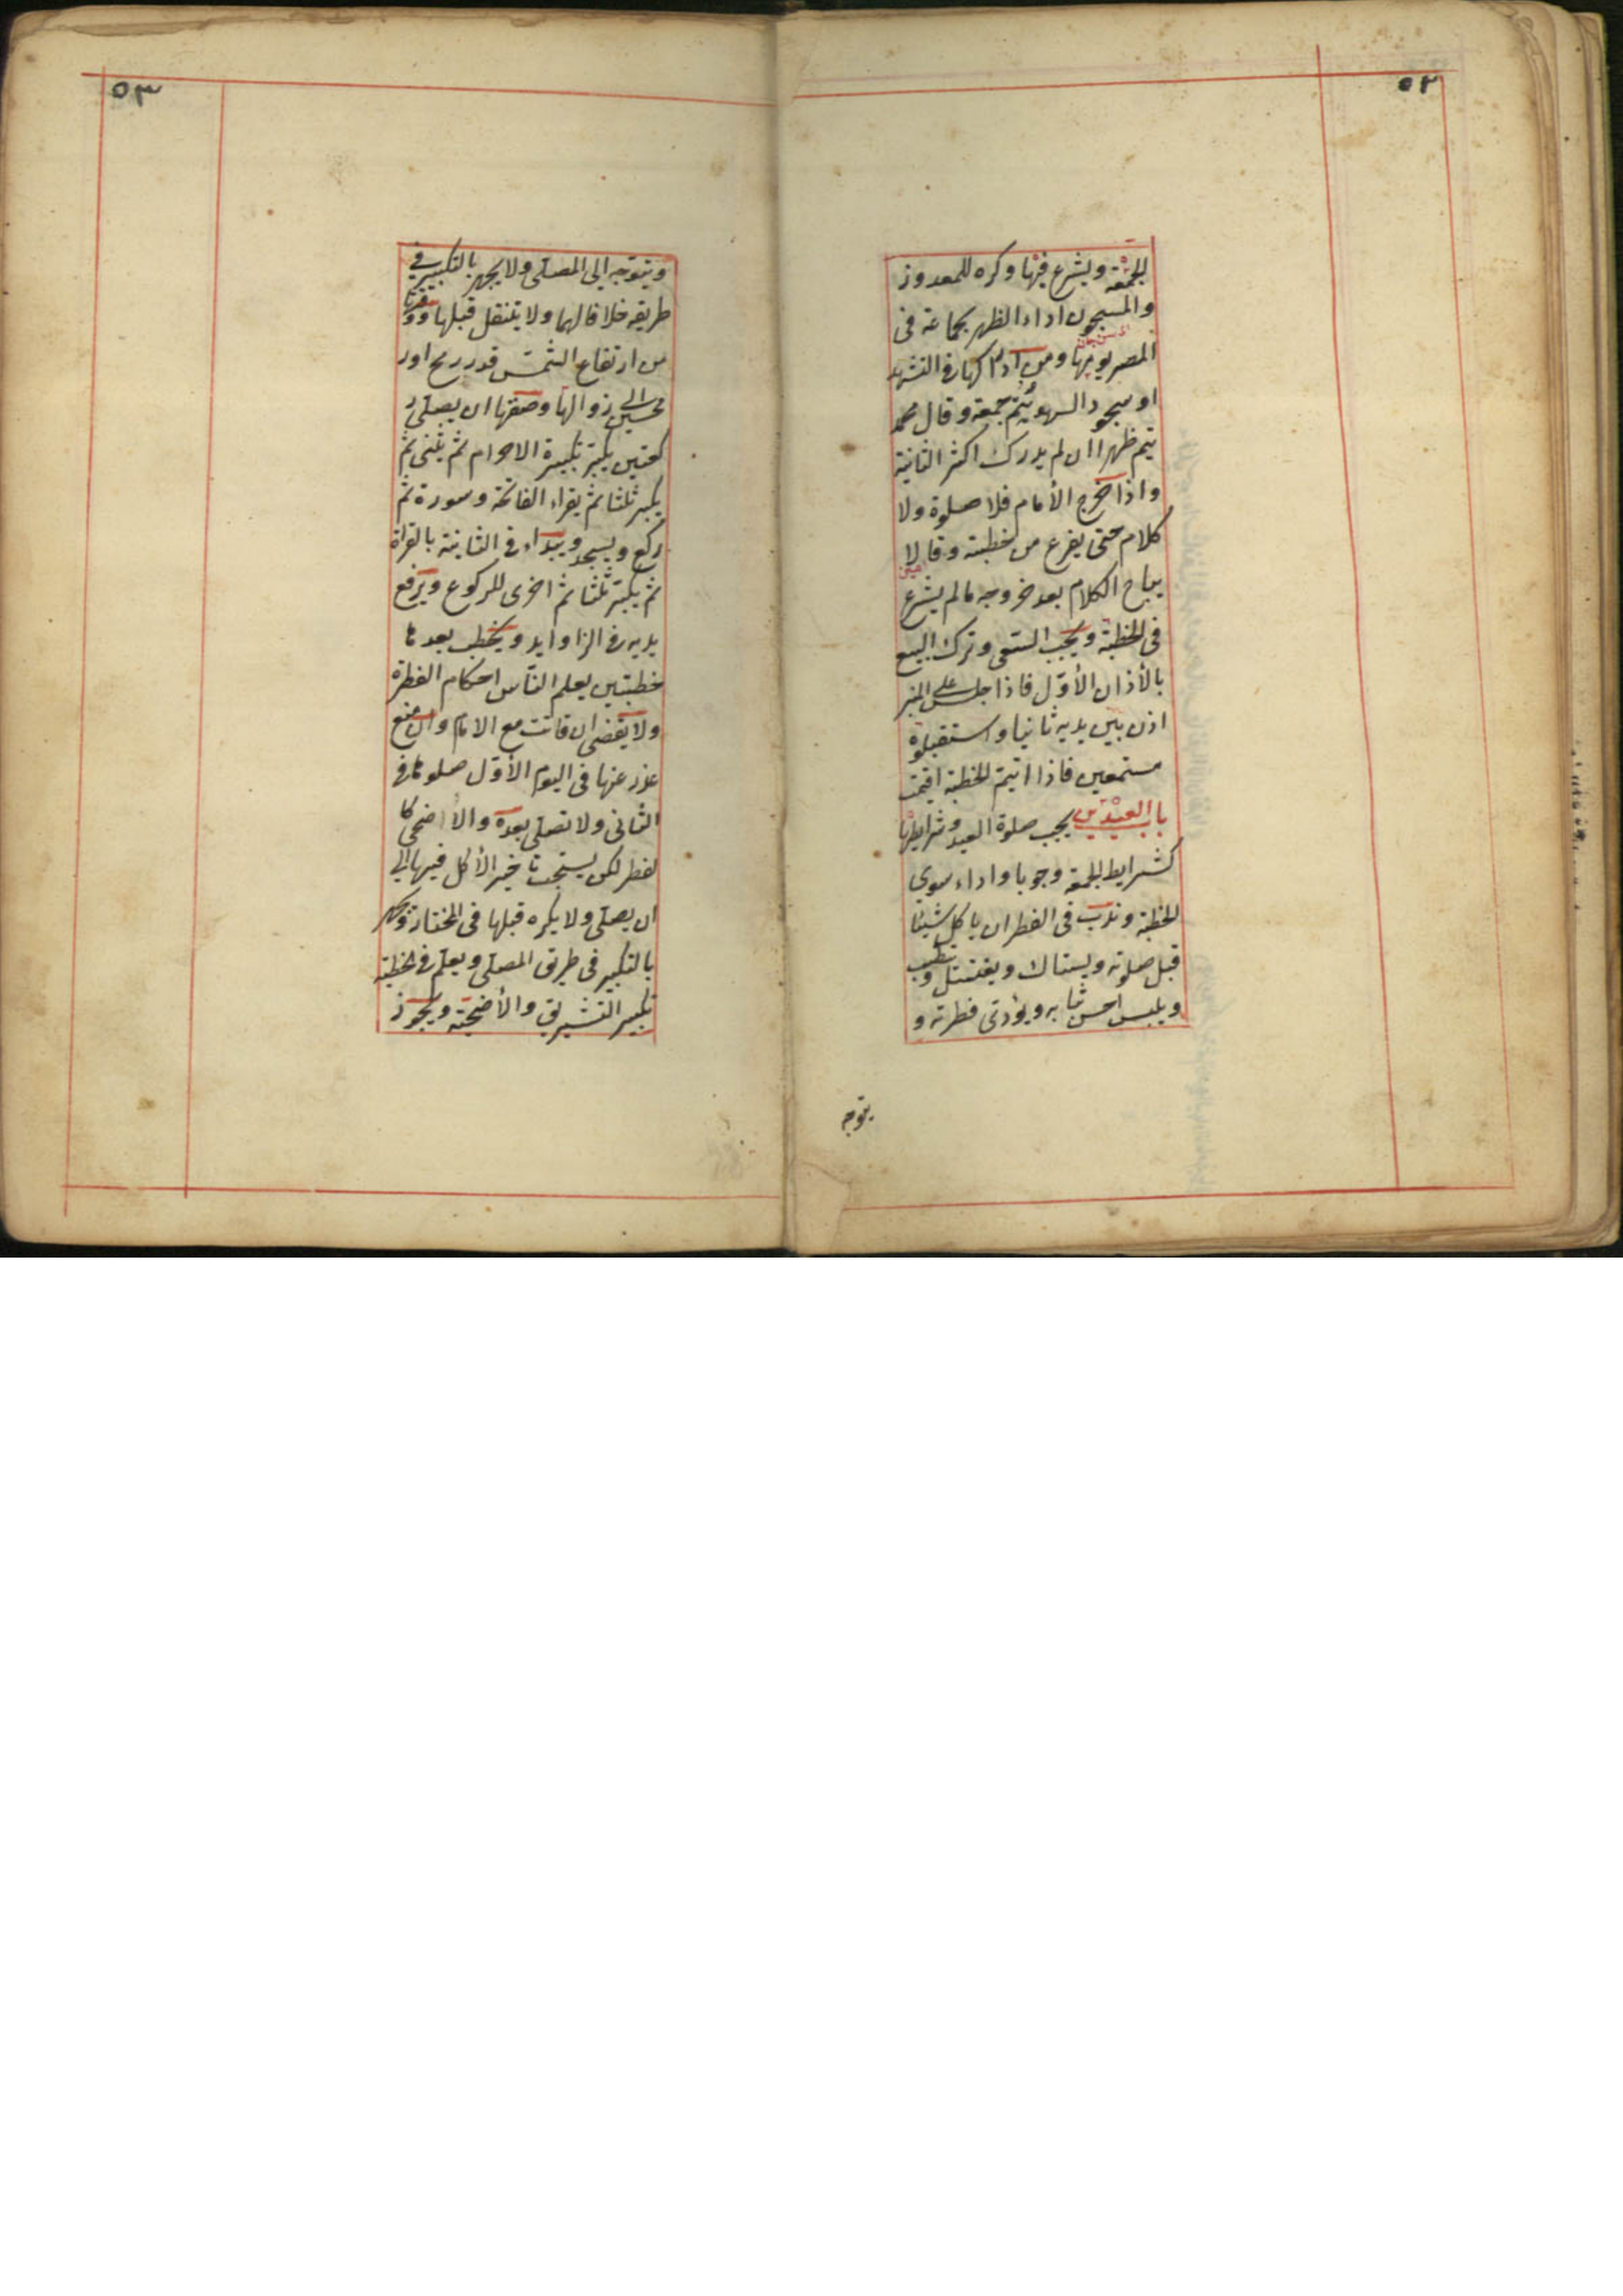 ٥٢
الجمعة ويشرع فيها وكره للمعدوز
والمسجون اداء الظهر بجماعة فى
المصر يومها ومن ادركها فى التشهد
او سجود السهو يتم جمعة وقال محمد
يتم ظهرا ان لم يدرك اكثر الثانية
واذا خرج الأمام فلا صلوة ولا
كلام حتى يفرغ من خطبته وقالا
يباح الكلام بعد خروجه مالم يشرع
فى الخطبة ويجب السعى وترك البيع
بالأذان الأول فاذا جلس على المنبر
اذن بين يديه ثانيا واستقبلوه
مستمعين فاذا اتيم الخطبة اقيمت
باب العيدين يجب صلوة العيد وشرايطها
كشرايط الجمعة وجوبا واداء سوى
الخطبة وندب فى الفطر ان ياكل شيئا
قبل صلوته ويستاك ويغتسل ويتطيب
ويلبس احسن ثيابه ويؤدى فطرته و
يتوجه
٥٣
ويتوجه الى المصلى ولا يجهر بالتكبير فى
طريقه خلافا لهما ولا يتنفل قبلها ووقتها
من ارتفاع الشمس قدر رمح اور
محين الى زوالها وصفتها ان يصلى ر
كعتين يكبر تكبيرة الاحرام ثم يثنى ثم
يكبر ثلثا ثم يقراء الفاتحة وسورة ثم
ركع ويسجد ويبداء فى الثانية بالقراة
ثم يكبر ثلثا ثم اخرى للركوع ويرفع
يديه فى الزاوايد ويخطب بعدها
خطبتين يعلم الناس احكام الفطرة
ولا يقضى ان فاتت مع الامام وان منع
عذر عنها فى اليوم الأول صلوها فى
الثانى ولا تصلى بعده والأضحى كا
لفطر لكن يستحب تاخير الأكل فيها الى
ان يصلى ولا يكره قبلها فى المختار ويجهر
بالتكبير فى طريق المصلى ويعلم فى الخطبة
تكبير التشريق والأضحية ويجوز